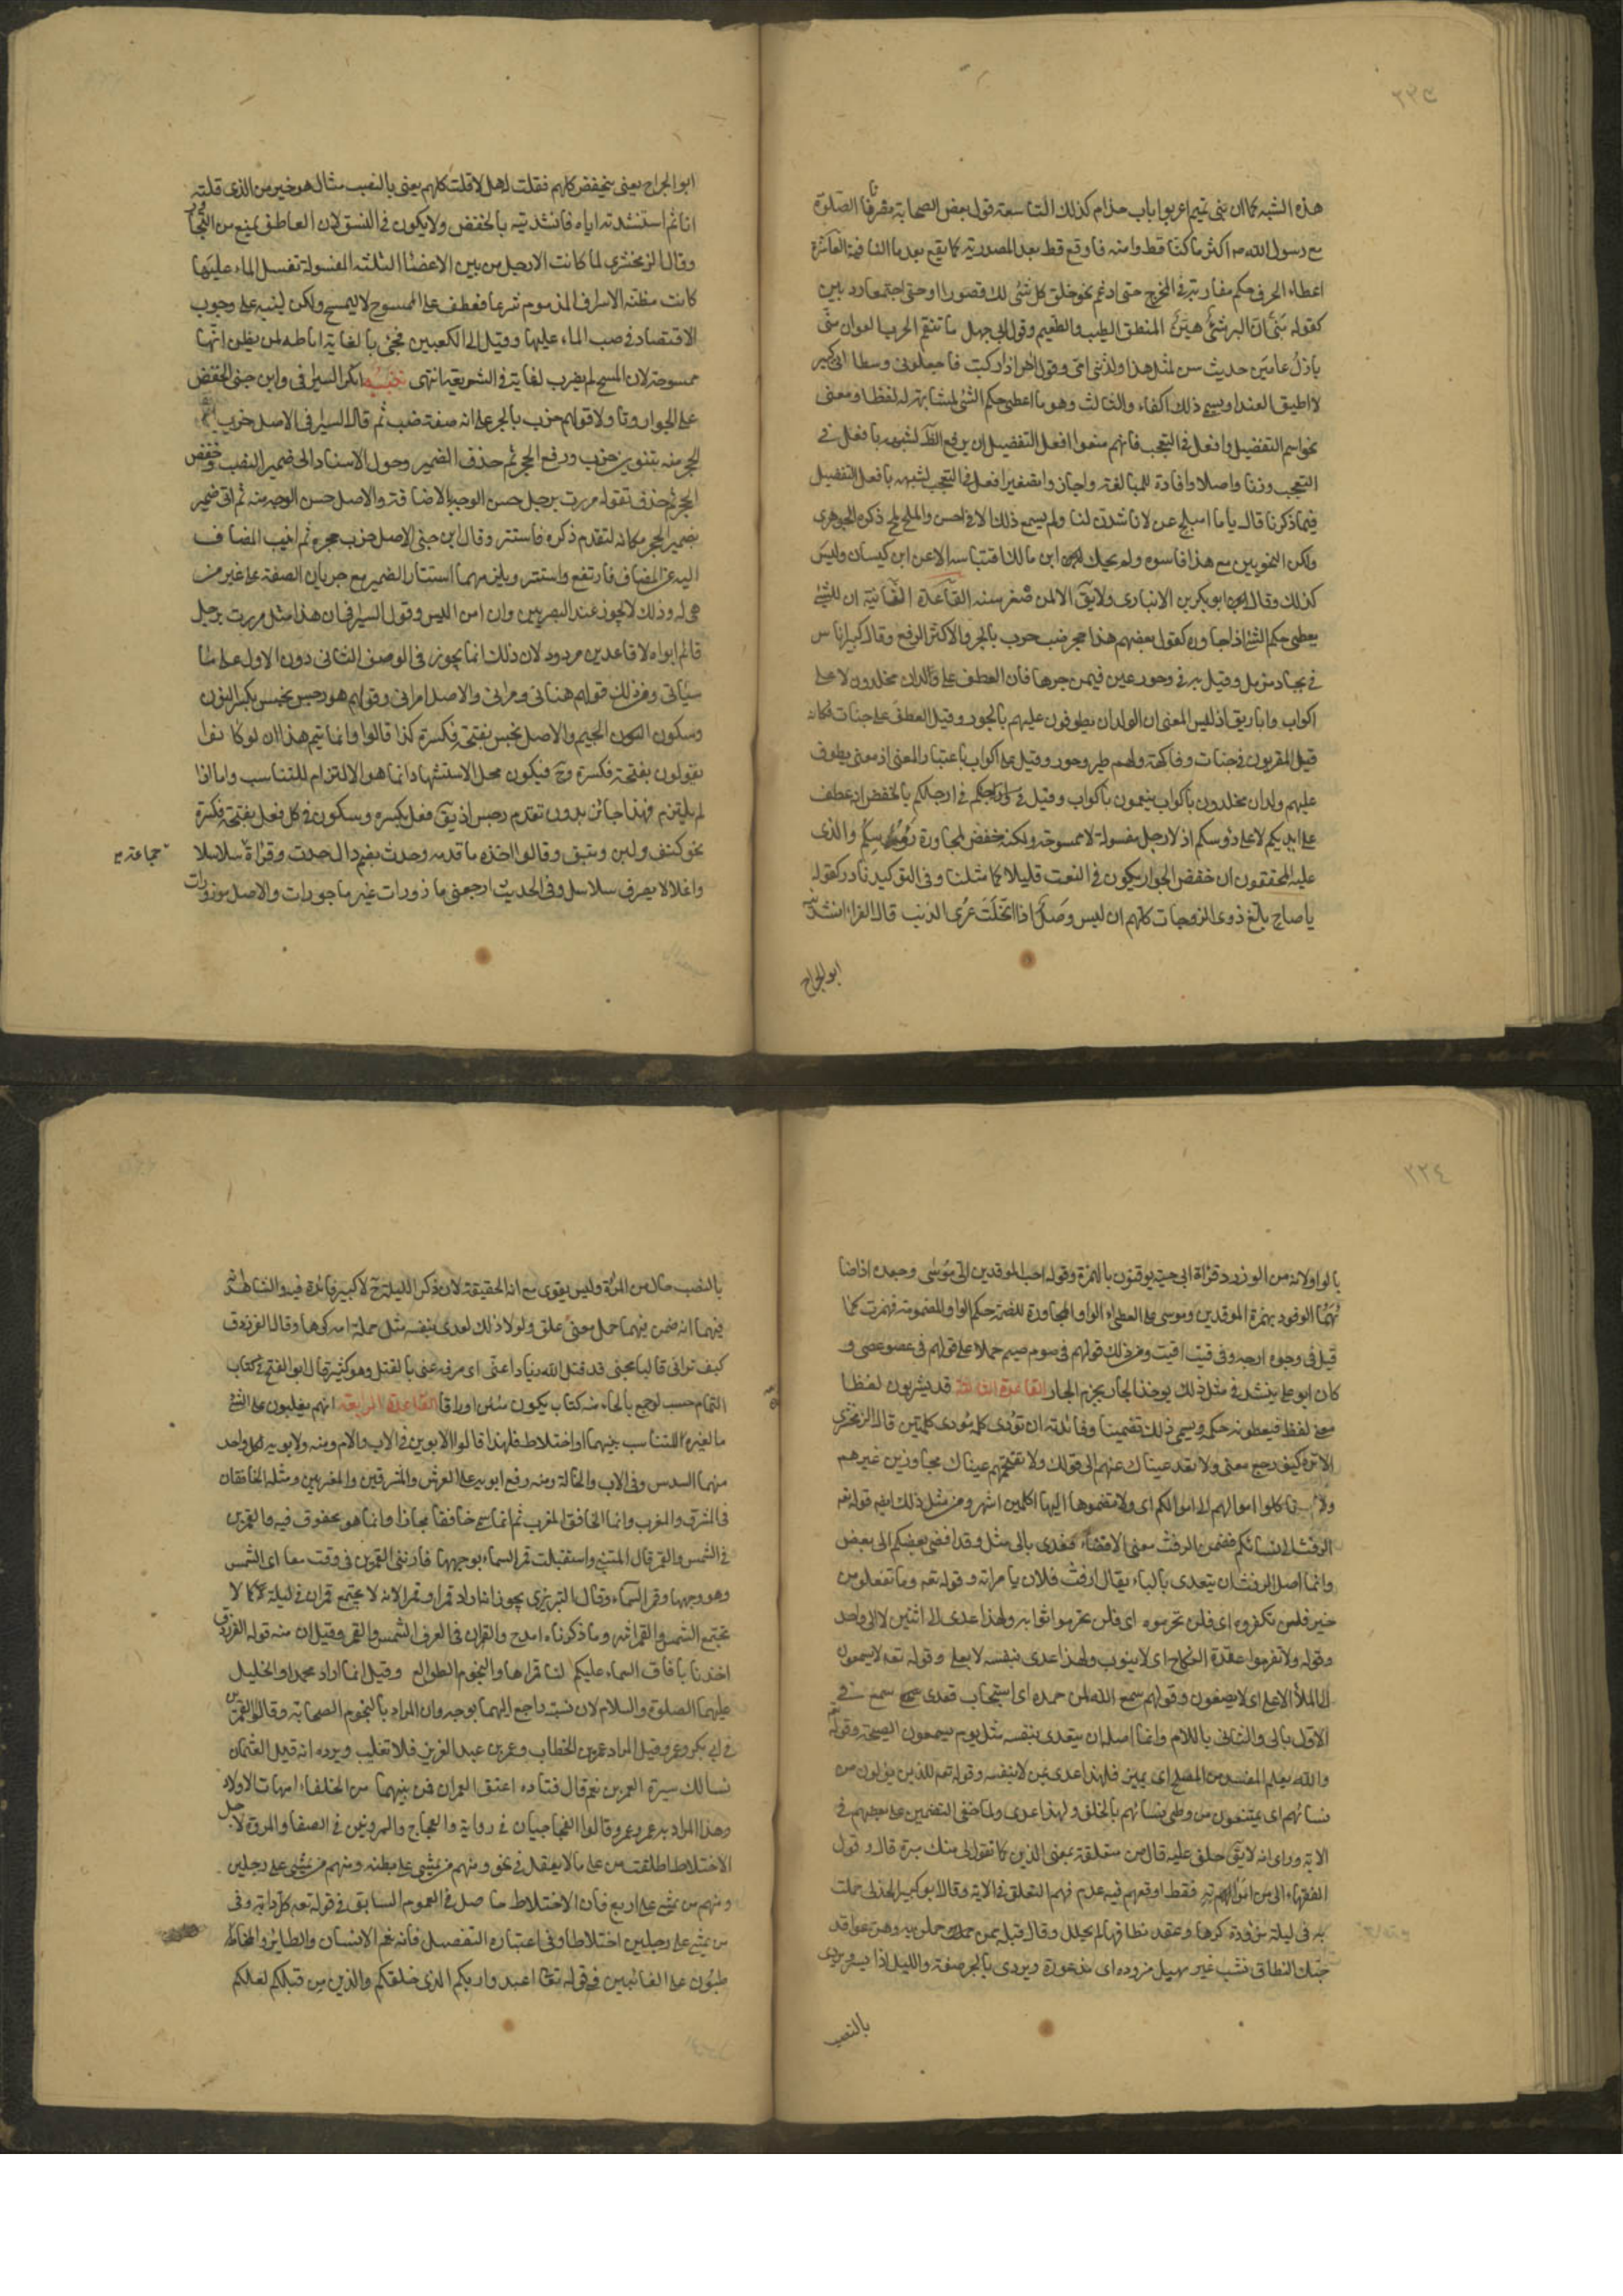 ٢٢٣
هذه الشبه كما ان بنى تميم اعربوا باب حذام كذلك التاسعة قول بعض الصحابة قصرنا الصلوة
مع رسول الله ص اكثر ما كنا قط وامنه فاوقع قط بعد ما المصدرية كما يقع بعد ما النافية العاشرة
اعطاء الحرف حكم مقاربه في المخرج حتى ادغم نحو خلق كل شئ لك قصورا وحتى اجتمعا رويين
كقوله بنى ان البر شئ هين المنطق الطيب والطعيم وقول ابى جهل ما تنقم الحرب العوان منى
بازل عامين حديث سن لمثل هذا ولدتنى امى وقول اخر اذا ركبت فاجعلونى وسطا انى كبير
لا اطيق العندا ويسمى ذلك اكفاء والثالث وهو ما اعطى حكم الشئ لمشابهته له لفظا ومعنى
نحو اسم التفضيل وافعل في التعجب فانهم منعوا افعل التفضيل ان يرفع الظ لشبهه بافعل في
التعجب وزنا واصلا وافادة للمبالغة واجازوا تصغير افعل في التعجب لشبهه بافعل التفضيل
فيما ذكرنا قال ياما امیلح غزلانا شدن لنا ولم يسمع ذلك الا في احسن واملح ذكره الجوهرى
ولكن النحويين مع هذا قاسوه ولم يحك ابن مالك اقتياسه الا عن ابن كيسان وليس
كذلك وقال ابو بكر بن الانبارى ولا يق الا لمن صغر سنه القاعدة الثانية ان الشئ
يعطى حكم الشئ اذا جاوره كقول بعضهم هذا حجر ضب خرب بالجر والاكثر الرفع وقال كبير اناس
في بجاد مزمل وقيل به في وحور عين فيمن جرهما فان العطف على ولدان مخلدون لا على
اكواب واباريق اذ ليس المعنى ان الولدان يطوفون عليهم بالحور وقيل العطف على جنات فكانه
قيل المقربون في جنات وفاكهة ولحم طير وحور وقيل على اكواب باعتبار المعنى اذ معنى يطوف
عليهم ولدان مخلدون باكواب ينعمون باكواب وقيل في وارجلكم بالخفض انه عطف
على ايديكم لا على رؤسكم اذ الارجل مغسولة لا ممسوحة ولكنه خفض لمجاورة رؤسكم والذى
عليه المحققون ان خفض الجوار يكون في النعت قليلا كما مثلنا وفى التوكيد نادر كقوله
يا صاح بلغ ذوى الزوجات كلهم ان ليس وصل اذا انحلت عرى الذنب قال الفراء انشدنيه
ابو الجراح
ابو الجراح يعنى بخفض كلهم فقلت له هلا قلت كلهم يعنى بالنصب فقال هو خير من الذى قلته
انا ثم استنشدته اياه فانشدنيه بالخفض ولا يكون في النسق لان العاطف يمنع من التجاور
وقال الزمخشرى لما كانت الارجل من بين الاعضاء الثلثة المغسولة تغسل بالماء عليها
كانت مظنة الاسراف المذموم شرعا فعطف على الممسوح لا لتمسح ولكن لينبه على وجوب
الاقتصاد في صب الماء عليها وقيل الى الكعبين فجئ بالغاية اماطة لمن يظن انها
ممسوحة لان المسح لم يضرب له غاية في الشريعة انتهى تنبيه انكر السيرافى وابن جنى الخفض
على الجوار وتاولا قولهم خرب بالجر على انه صفة ضب ثم قال السيرافى الاصل خرب
الحجر منه بتنوين خرب ورفع الحجر ثم حذف الضمير وحول الاسناد الى ضمير الضب وخفض
الحجر ثم حذف كما تقول مررت برجل حسن الوجه بالاضافة والاصل حسن الوجه منه ثم اتى ضمير
بضمير الحجر مكانه لتقدم ذكره فاستتر وقال ابن جنى الاصل خرب حجره ثم انيب المضاف
اليه عن المضاف فارتفع واستتر ويلزمهما استتار الضمير مع جريان الصفة على غير من
هى له وذلك لا يجوز عند البصريين وان امن اللبس وقول السيرافى ان هذا مثل مررت برجل
قائم ابواه لا قاعدين مردود لان ذلك انما يجوز في الوصف الثانى دون الاول على ما
سياتى ومن ذلك قولهم هنانى ومرانى والاصل امرانى وقولهم هو رجس نجس بكسر النون
وسكون الجيم والاصل نجس بفتحة فكسرة كذا قالوا وانما يتم هذا ان لو كانوا
يقولون بفتحة فكسرة وح فيكون محل الاستشهاد انما هو الالتزام للتناسب واما اذا
لم يلتزم فهذا جائز بدون تقدم رجس اذ يق فعل بكسرة وسكون في كل فعل بفتحة فكسرة
نحو كتف ولبن ونبق وقالوا اخذه ما قدم وحدث بضم دال حدث وقراءة سلاسلا
جماعة
واغلالا بصرف سلاسل وفى الحديث ارجعن مازورات غير ماجورات والاصل موزورات
٢٢٤
بالواو لانه من الوزر وقراءة ابى حية يوقنون بالهمزة وقوله احب الموقدين الى موسى وجعدة اذ اضا
ئهما الوقود بهمزة الموقدين وموسى على اعطاء الواو المجاورة للضمة حكم الواو المضمومة فهمزت كما
قيل في وجوه اجوه وفى وقتت اقتت ومن ذلك قولهم في صوم صيم حملا على قولهم في عصو عصى و
كان ابو على ينشد في مثل ذلك يؤخذ الجار بجرم الجار القاعدة الثالثة قد يشربون لفظا
معنى لفظ فيعطونه حكمه ويسمى ذلك تضمينا وفائدته ان تؤدى كلمة مؤدى كلمتين قال الزمخشرى
الا ترى كيف رجع معنى ولا تعد عيناك عنهم الى قولك ولا تقتحمهم عيناك مجاوزين غيرهم
ولا تاكلوا اموالهم الى اموالكم اى ولا تضموها اليها اكلين انتهى ومن مثل ذلك ايضا قوله تعه
الرفث الى نسائكم فضمن الرفث معنى الافضاء فعدى بالى مثل وقد افضى بعضكم الى بعض
وانما اصل الرفث ان يتعدى بالباء يقال ارفث فلان بامراته وقوله تعه وما تفعلوا من
خير فلن تكفروه اى فلن تحرموه اى فلن تحرموا ثوابه ولهذا عدى الى اثنين لا الى واحد
وقوله ولا تعزموا عقدة النكاح اى لا تنووا ولهذا عدى بنفسه لا بعلى وقوله تعه لا يسمعون
الى الملأ الاعلى اى لا يصغون وقولهم سمع الله لمن حمده اى استجاب فعدى سمع في
الاول بالى والثانى باللام وانما اصله ان يتعدى بنفسه مثل يوم يسمعون الصيحة وقوله
والله يعلم المفسد من المصلح اى يميز فلهذا عدى بمن لا بنفسه وقوله تعه للذين يؤلون من
نسائهم اى يمتنعون من وطى نسائهم بالحلف ولهذا عدى ولما خفى التضمين على بعضهم في
الاية وراى انه لا يق حلف عليه قال من متعلقة بمعنى للذين كما تقول لى منك مبرة قال وقول
الفقهاء الى من امراته فقط اوقعهم فيه عدم فهم التعلق في الاية وقال ابو كبير الهذلى حملت
به في ليلة مزؤدة كرها وعقد نطاقها لم يحلل وقال قبله ممن حملن به وهن عواقد
حبك النطاق فشب غير مهبل مزؤدة اى مذعورة ويروى بالجر صفة والليل اذا يسر ويروى
بالنصب
بالنصب حال من المراة وليس بقوى مع انه الحقيقة لان ذكر الليلة ح لا كبير فائدة فيه والشاهد
فيهما انه ضمن فيهما حمل معنى علق ولولا ذلك لعدى بنفسه مثل حملته امه كرها وقال الفرزدق
كيف ترانى قالبا مجنى قد قتل الله زيادا عنى اى صرفه عنى بالقتل وهو كثير قال ابو الفتح في كتاب
التمام احسب لو جمع ما جاء منه كتاب يكون مئين اوراقا القاعدة الرابعة انهم يغلبون على الشئ
ما لغيره لتناسب بينهما او اختلاط فلهذا قالوا الابوين في الاب والام ومنه ولابويه لكل واحد
منهما السدس وفى الاب والخالة ومنه رفع ابويه على العرش والمشرقين والمغربين ومثله الخافقان
في المشرق والمغرب وانما الخافق المغرب ثم انما سمى خافقا مجازا وانما هو مخفوق فيه والقمرين
في الشمس والقمر قال المتنبى واستقبلت قمر السماء بوجهها فارتنى القمرين في وقت معا اى الشمس
وهو وجهها وقمر السماء وقال التبريزى يجوز انه اراد قمرا وقمرا لانه لا يجتمع قمران في ليلة كما لا
تجتمع الشمس والقمر انتهى وما ذكرناه امدح والقمران في العرف الشمس والقمر وقيل ان منه قوله الفرزدق
اخذنا بافاق السماء عليكم لنا قمراها والنجوم الطوالع وقيل انما اراد محمدا والخليل
عليهما الصلوة والسلام لان نسبه راجع اليهما بوجه وان المراد بالنجوم الصحابة وقالوا العمرين
في ابى بكر وعمر وقيل المراد عمر بن الخطاب وعمر بن عبد العزيز فلا تغليب ويرده انه قيل لعثمان
نسالك سيرة العمرين نعم قال قتادة اعتق العمران فمن بينهما من الخلفاء امهات الاولاد
وهذا المراد به عمر وعمر وقالوا العجاجين في رؤبة والعجاج والمروتين في الصفا والمروة لاجل
الاختلاط اطلقت من على ما لا يعقل في نحو ومنهم من يمشى على بطنه ومنهم من يمشى على رجلين
ومنهم من يمشى على اربع فان الاختلاط حاصل في العموم السابق في قوله تعه كل دابة وفى
من يمشى على رجلين اختلاط اخر في عبارة التفصيل فانه يعم الانسان والطائر والمخاطبين
طبون على الغائبين في قوله تعه اعبدوا ربكم الذى خلقكم والذين من قبلكم لعلكم